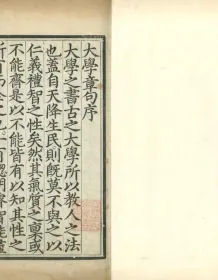 大學章句序
大學之書古之大學所以教人之法
也蓋自天降生民則既莫不與之以
仁義禮智之性矣然其氣質之稟或
不能齊是以不能皆有以知其性之